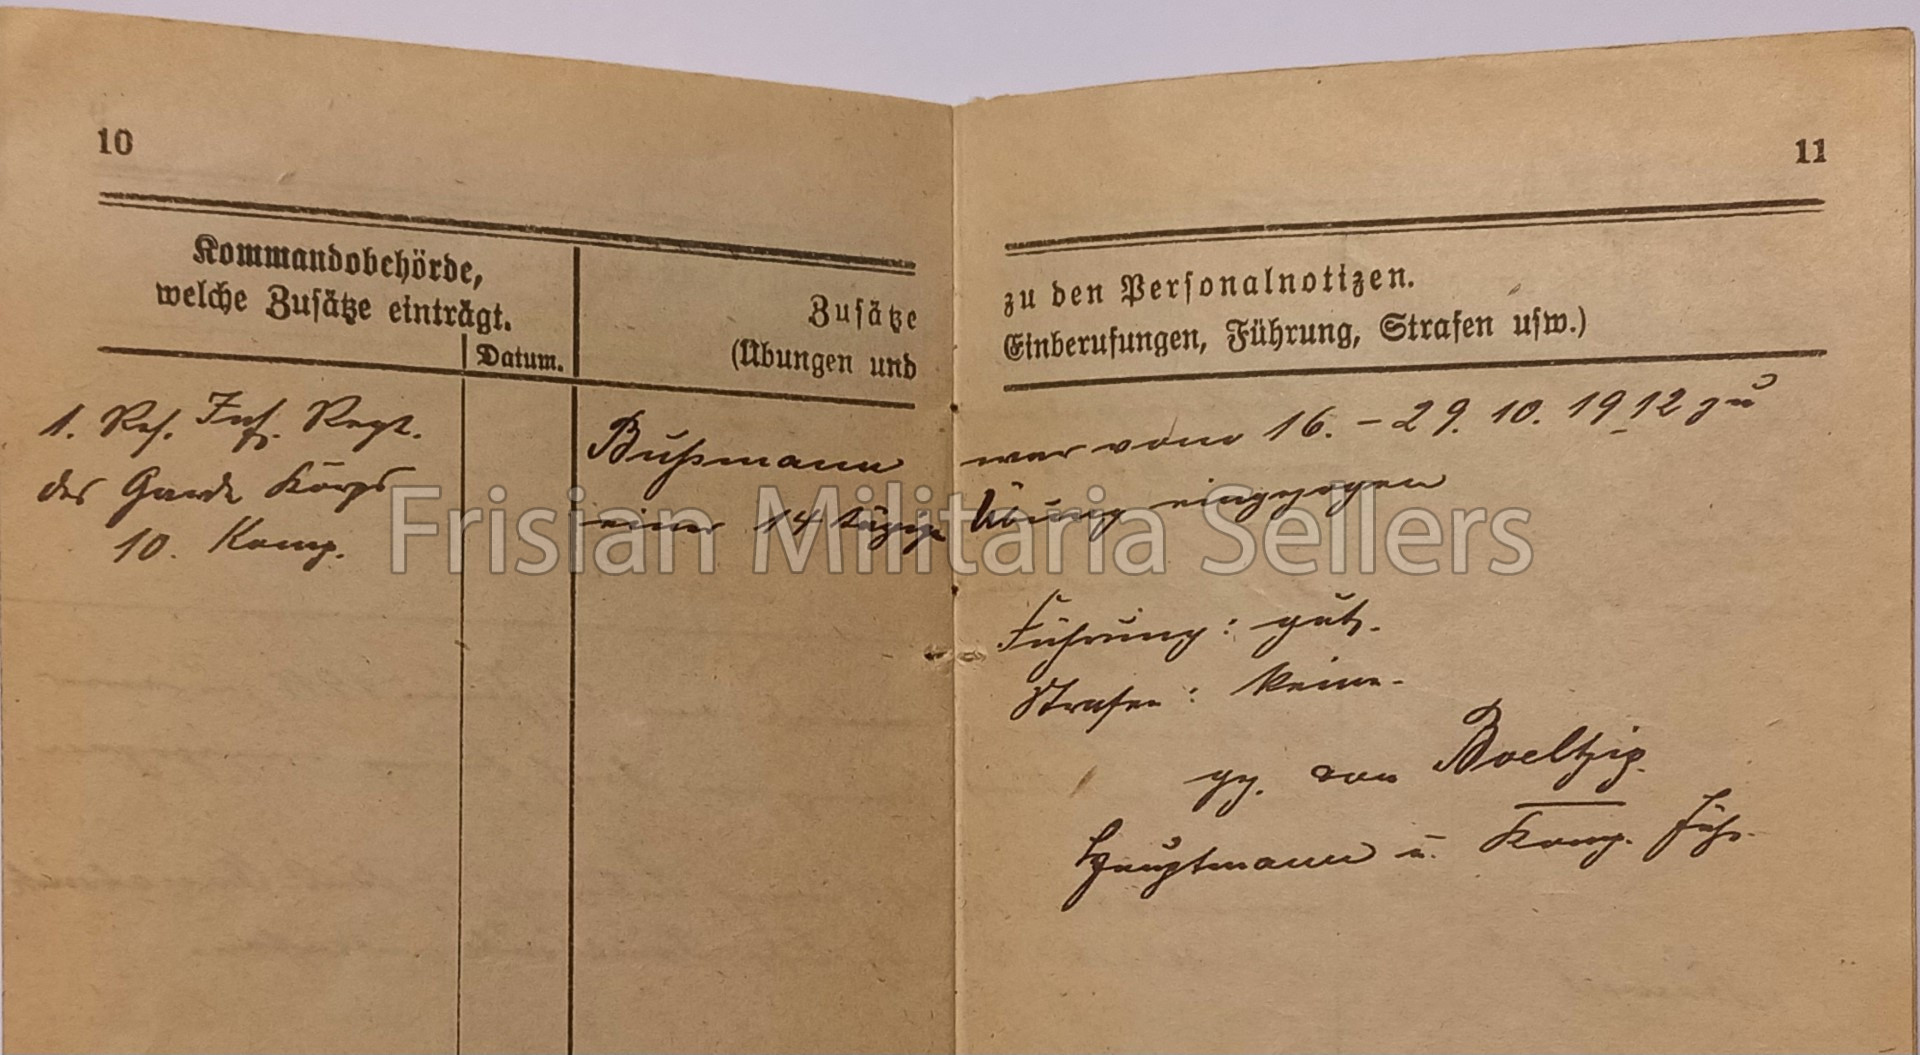 10
Kommandobehörde,
welche Zusätze einträgt.
Datum.
Zusätze
(Übungen und
1. Res. Inf. Regt.
des Garde Korps
10. Komp.
Bußmann
einer 14 tägige
11
zu den Personalnotizen.
Einberufungen, Führung, Strafen usw.)
war vom 16. – 29. 10. 1912 zu
Übung eingezogen
Führung: gut.
Strafen: keine.
gez. von Boeltzig.
Hauptmann u. Komp. Führ.
Frisian Militaria Sellers